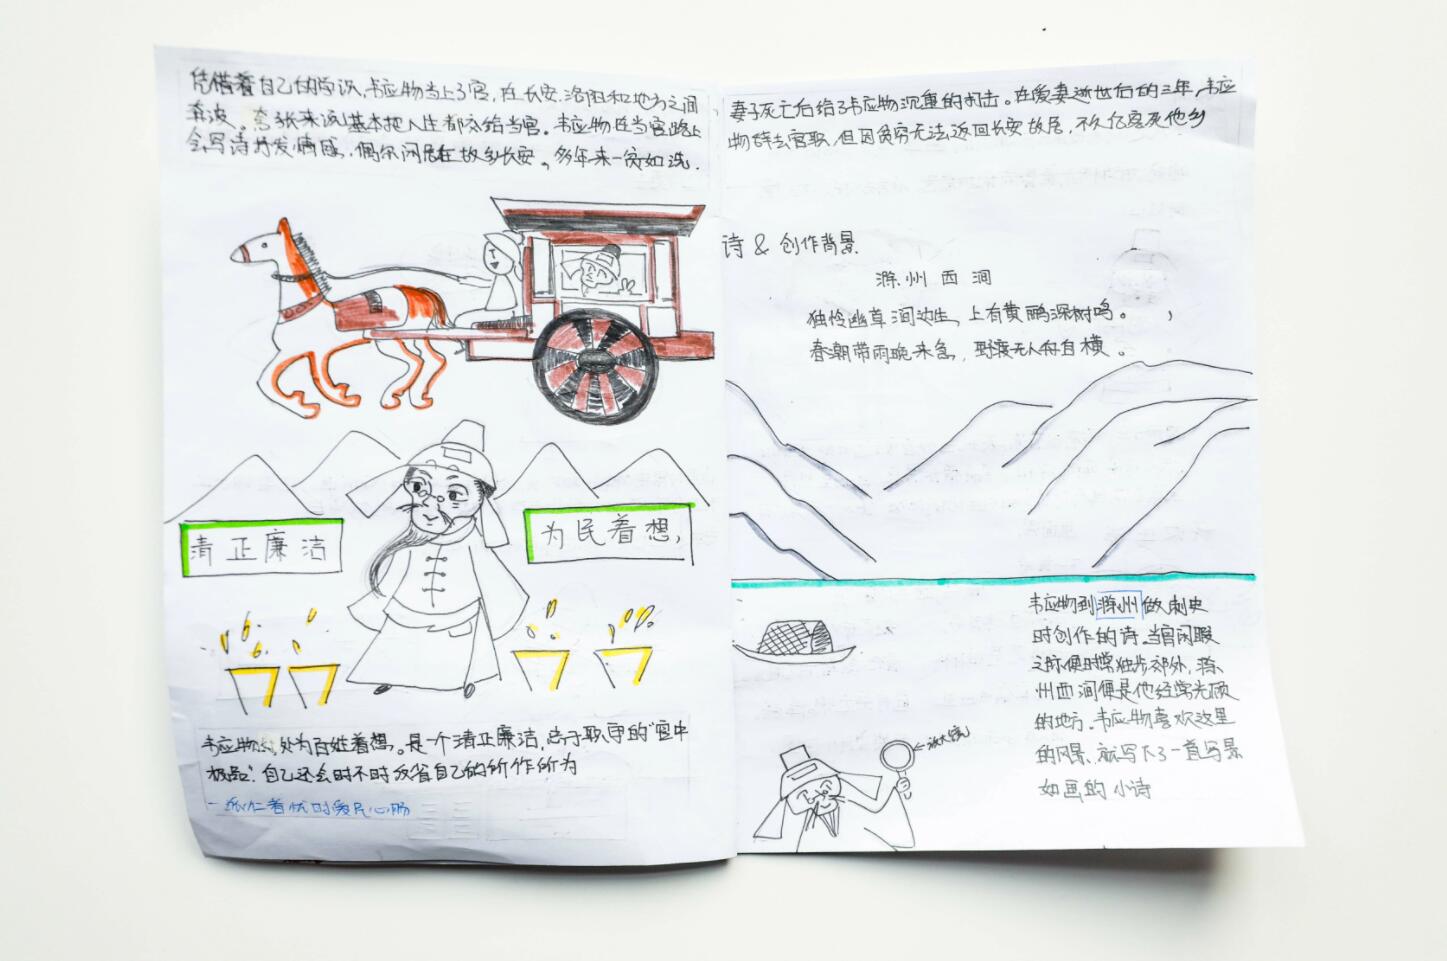 凭借着自己的学识,韦应物当上了官,在长安、洛阳和地方之间
奔波。夸张来说基本把人生都交给当官。韦应物在当官路上
会写诗抒发情感,偶尔闲居在故乡长安。多年来一贫如洗.
清正廉洁
为民着想,
韦应物处处为百姓着想。是一个清正廉洁,忠于职守的“官中
极品”!自己还会时不时反省自己的所作所为
一派仁者忧时爱民心肠
妻子死亡后给了韦应物沉重的打击。在爱妻逝世后的三年,韦应
物辞去官职,但因贫穷无法返回长安故居,不久亦客死他乡
诗 & 创作背景
滁州西涧
独怜幽草涧边生,上有黄鹂深树鸣。
春潮带雨晚来急,野渡无人舟自横。
韦应物到滁州做刺史
时创作的诗.当官闲暇
之际便时常独步郊外,滁
州西涧便是他经常光顾
的地方.韦应物喜欢这里
的风景、就写下了一首写景
如画的小诗
放大镜